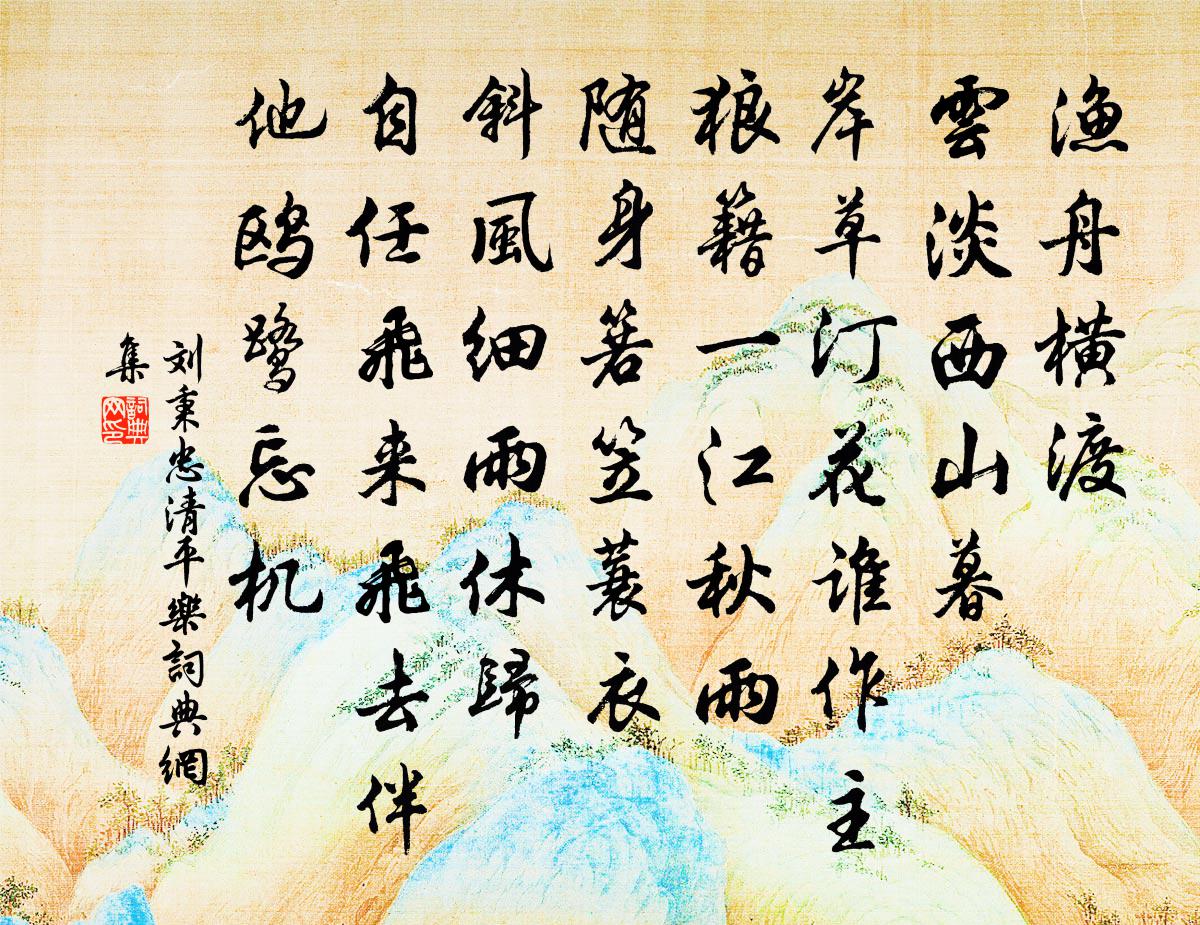 漁舟橫渡
雲淡西山暮
岸草汀花誰作主
狼籍一江秋雨
随身箬笠蓑衣
斜風细雨休歸
自任飛来飛去伴
他鸥鹭忘机
刘秉忠清平樂詞典網
集
詞典
网印